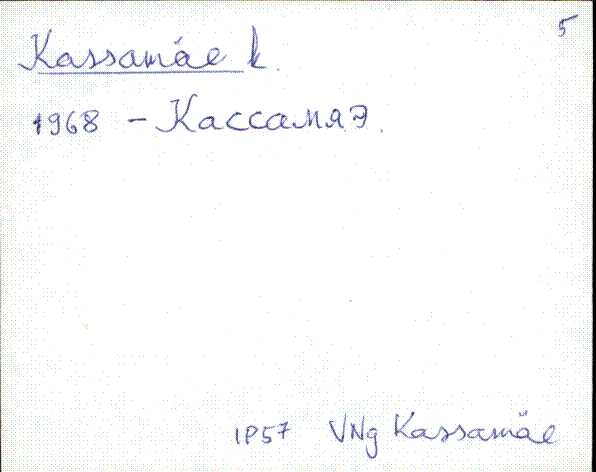 5
Kassamäe k.
1968 - Кассамяэ.
IP57 VNg Kassamäe